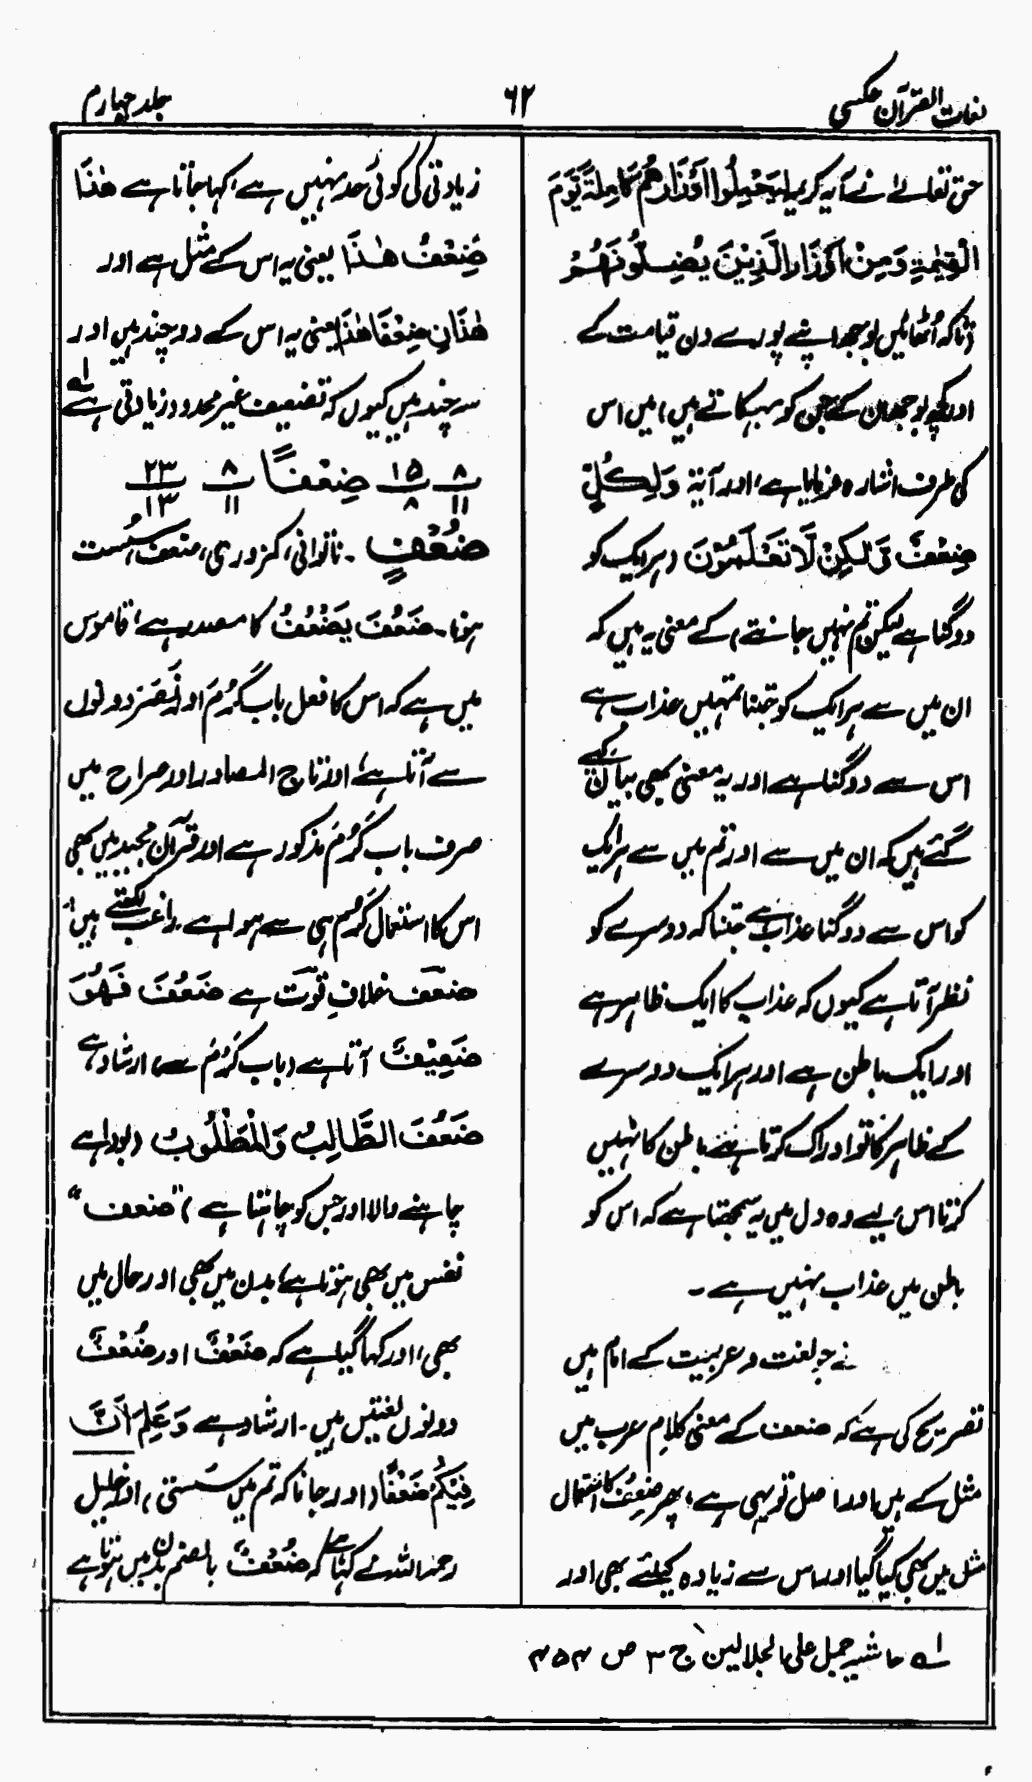 لغات القرآن عکسی
۶۲
جلد چہارم
حق تعالےٰ نے آیہ کریمہ لِیَحْمِلُوْا اَوْزَارَهُمْ کَامِلَةً یَّوْمَ
الْقِیٰمَةِ وَمِنْ اَوْزَارِ الَّذِیْنَ یُضِلُّوْنَهُمْ
(تاکہ اُٹھائیں بوجھ اپنے پورے دن قیامت کے
اور کچھ بوجھ ان کے جن کو بہکاتے ہیں) میں اس
کی طرف اشارہ فرمایا ہے، اور آیۃ وَلِکُلٍّ
ضِعْفٌ وَّلٰکِنْ لَّا تَعْلَمُوْنَ (ہر ایک کو
دوگنا ہے لیکن تم نہیں جانتے) کے معنی یہ ہیں کہ
ان میں سے ہر ایک کو جتنا تمہیں عذاب ہے
اس سے دوگنا ہے اور یہ معنی بھی بیان کیے
گئے ہیں کہ ان میں سے اور تم میں سے ہر ایک
کو اس سے دوگنا عذاب ہے جتنا کہ دوسرے کو
نظر آتا ہے کیوں کہ عذاب کا ایک ظاہر ہے
اور ایک باطن ہے اور ہر ایک دوسرے
کے ظاہر کا تو ادراک کرتا ہے باطن کا نہیں
کرتا اس لیے وہ دل میں یہ سمجھتا ہے کہ اس کو
باطن میں عذاب نہیں ہے ۔
نے جو لغت و عربیت کے امام ہیں
تصریح کی ہے کہ ضعف کے معنی کلام عرب میں
مثل کے ہیں اور اصل تو یہی ہے، پھر ضِعْف کا استعمال
مثل میں بھی کیا گیا اور اس سے زیادہ کیلئے بھی اور
زیادتی کی کوئی حد نہیں ہے، کہا جاتا ہے هٰذَا
ضِعْفُ هٰذَا یعنی یہ اس کے مثل ہے اور
هٰذَانِ ضِعْفَا هٰذَا یعنی یہ اس کے دو چند ہیں اور
سہ چند ہیں کیوں کہ تضعیف غیر محدود زیادتی ہے لہ
۸/۱۱ ۱۵/۸ ضِعْفًا ۸/۱۱ ۲۳/۱۳
ضُعْفٍ ۔ ناتوانی، کمزوری، ضعف، سُست
ہونا۔ ضَعُفَ یَضْعُفُ کا مصدر ہے، قاموس
میں ہے کہ اس کا فعل باب کَرُمَ اور نَصَرَ دونوں
سے آتا ہے، اور تاج المصادر اور صراح میں
صرف باب کَرُمَ مذکور ہے اور قرآن مجید میں بھی
اس کا استعمال کَرُمَ ہی سے ہوا ہے۔ راغب لکھتے ہیں:
ضعف خلافِ قوت ہے ضَعُفَ فَهُوَ
ضَعِیْفٌ آتا ہے (باب کَرُمَ سے) ارشاد ہے
ضَعُفَ الطَّالِبُ وَالْمَطْلُوْبُ (بودا ہے
چاہنے والا اور جس کو چاہتا ہے) "ضعف"
نفس میں بھی ہوتا ہے، بدن میں بھی اور حال میں
بھی، اور کہا گیا ہے کہ ضَعْفٌ اور ضُعْفٌ
دونوں لغتیں ہیں۔ ارشاد ہے وَعَلِمَ اَنَّ
فِیْکُمْ ضَعْفًا (اور جانا کہ تم میں سستی ہے) اور خلیل
رحمہ اللہ نے کہا ہے کہ ضُعْفٌ بالضم بدن میں ہوتا ہے
لہ حاشیہ جمل علی الجلالین ج ۳ ص ۴۵۴